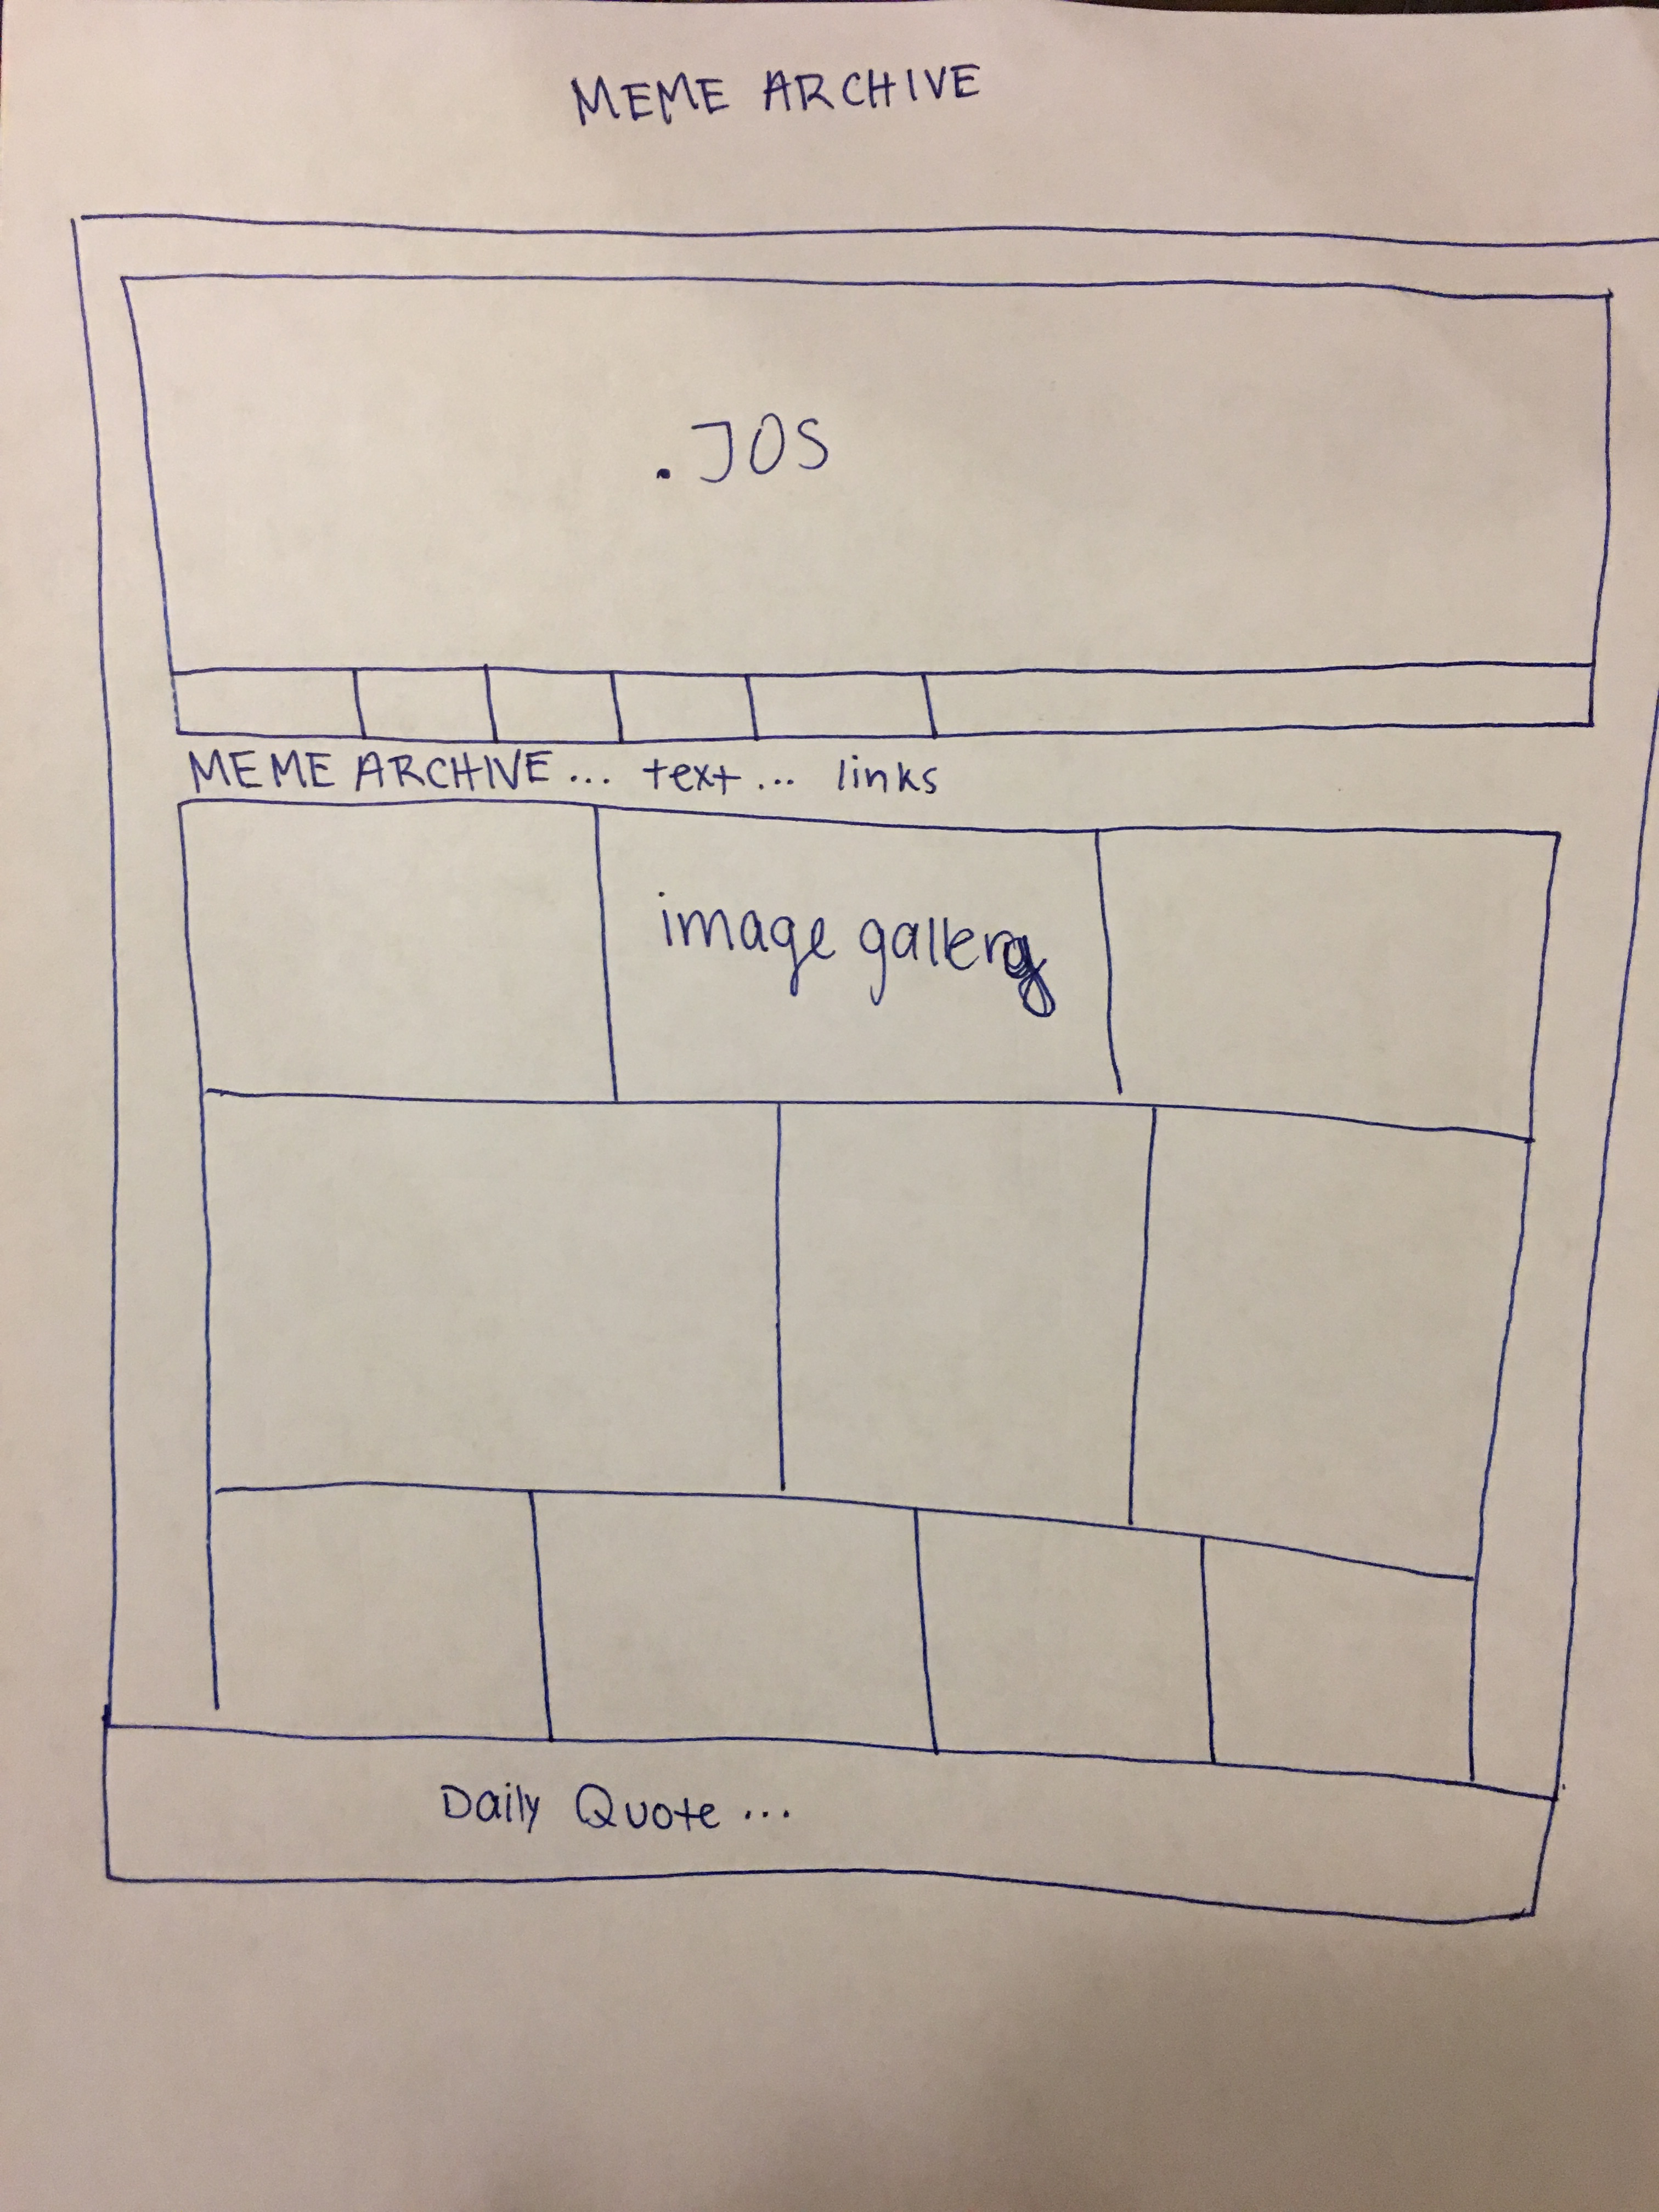 MEME ARCHIVE
.JOS
MEME ARCHIVE... text... links
image gallery
Daily Quote...